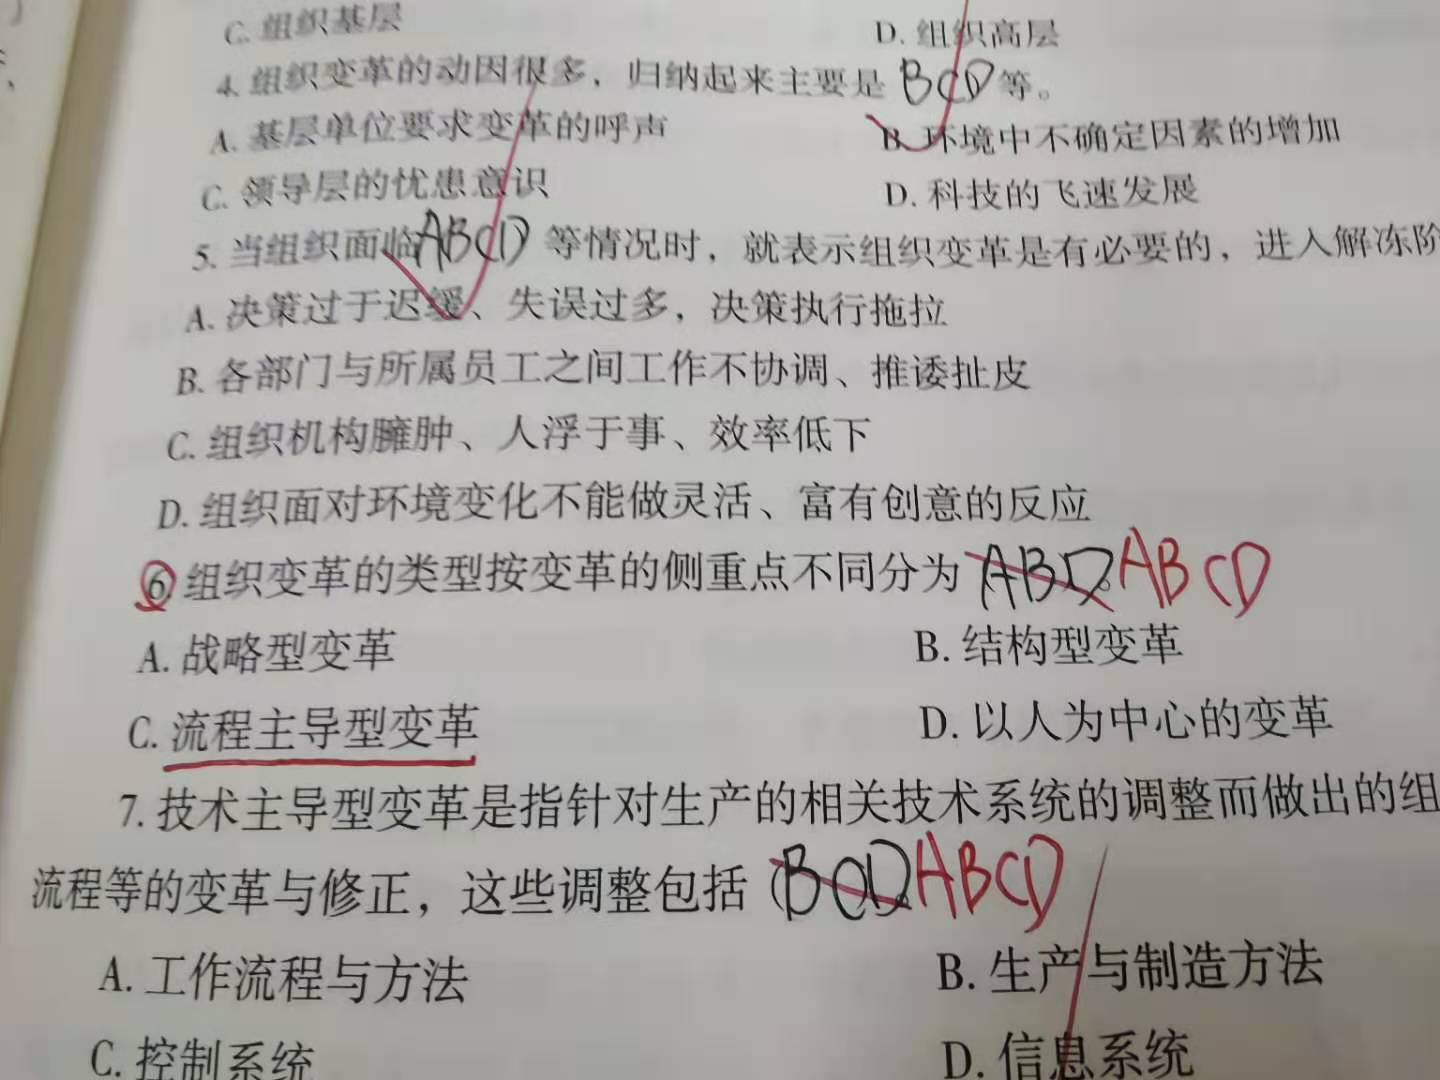 C. 组织基层 D. 组织高层
4. 组织变革的动因很多，归纳起来主要是 BCD 等。
A. 基层单位要求变革的呼声 B. 环境中不确定因素的增加
C. 领导层的忧患意识 D. 科技的飞速发展
5. 当组织面临 ABCD 等情况时，就表示组织变革是有必要的，进入解冻阶
A. 决策过于迟缓、失误过多，决策执行拖拉
B. 各部门与所属员工之间工作不协调、推诿扯皮
C. 组织机构臃肿、人浮于事、效率低下
D. 组织面对环境变化不能做灵活、富有创意的反应
6 组织变革的类型按变革的侧重点不同分为 ABD ABCD
A. 战略型变革 B. 结构型变革
C. 流程主导型变革 D. 以人为中心的变革
7. 技术主导型变革是指针对生产的相关技术系统的调整而做出的组
流程等的变革与修正，这些调整包括 BCD ABCD
A. 工作流程与方法 B. 生产与制造方法
C. 控制系统 D. 信息系统